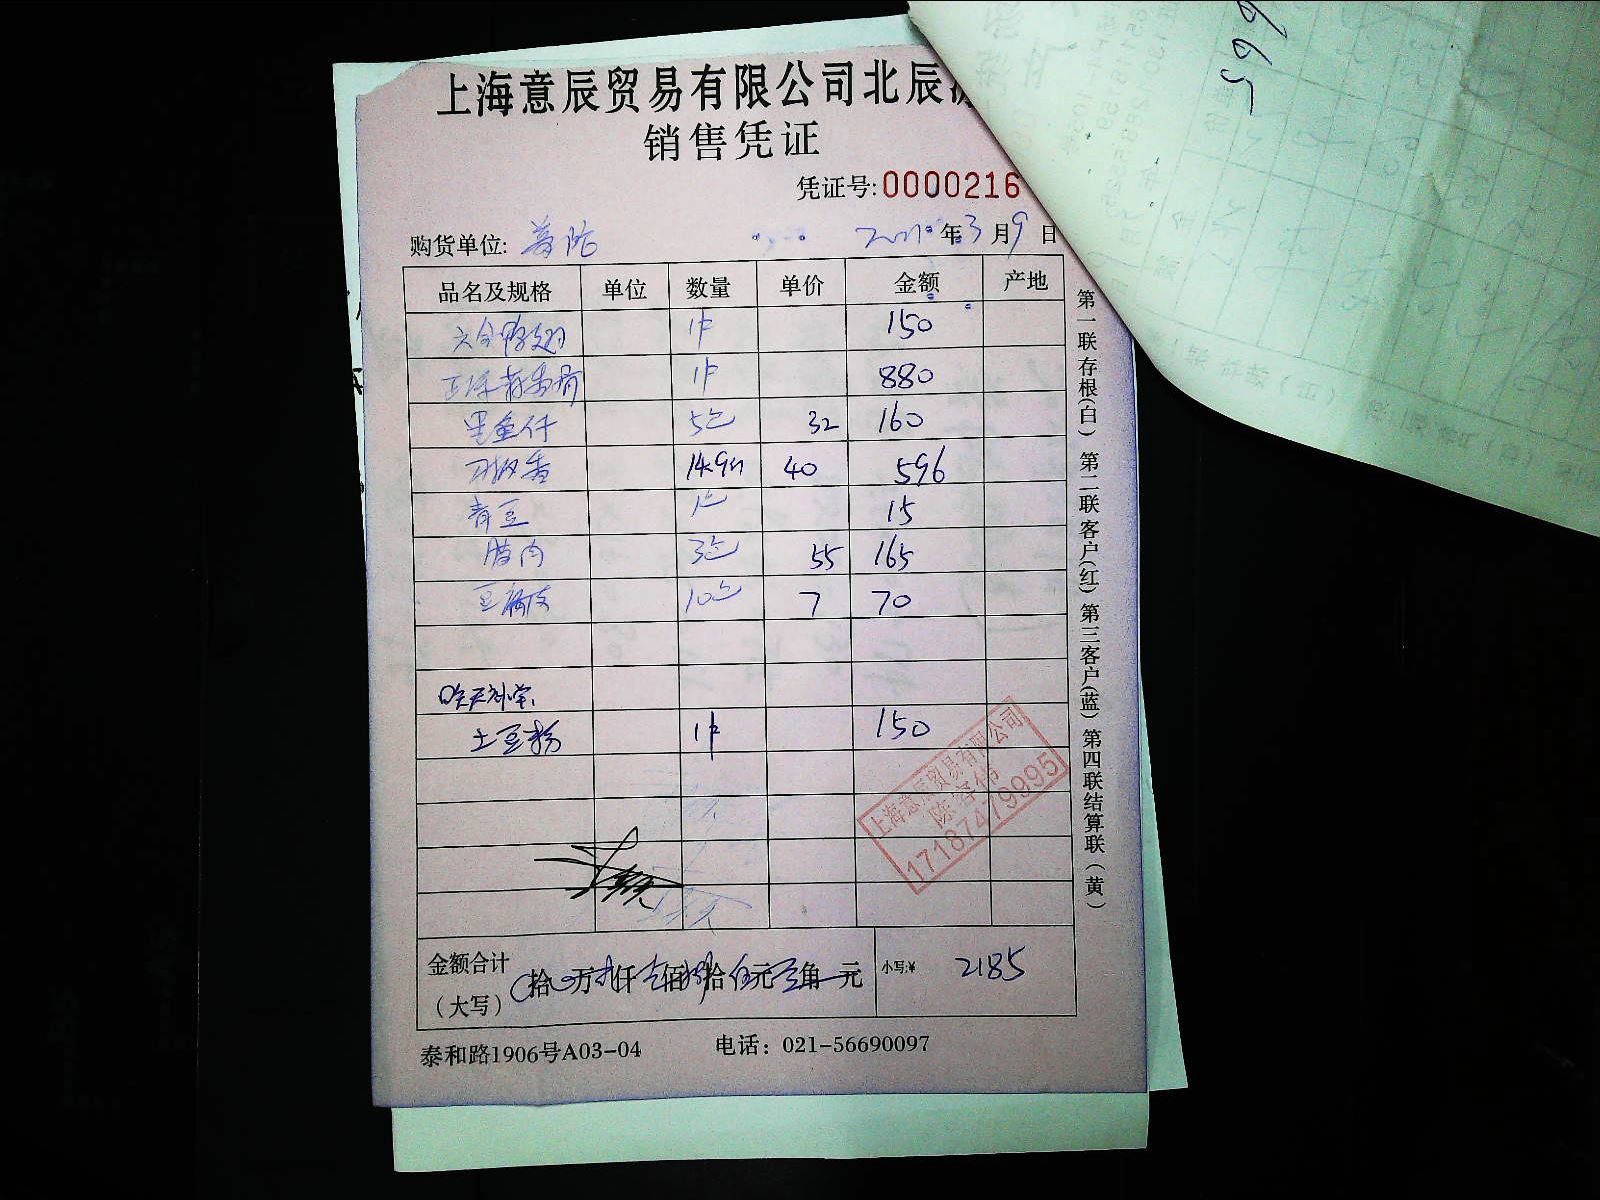 上海意辰贸易有限公司北辰
销售凭证
凭证号:0000216
购货单位: 2021年3月9日
品名及规格 单位 数量 单价 金额 产地
六合鸭翅 1件 150
1件 880
黑鱼仔 5包 32 160
刀板香 14.9斤 40 596
青豆 1包 15
腊肉 3包 55 165
豆腐皮 10包 7 70
昨天补单
土豆粉 1件 150
上海意辰贸易有限公司
17187479995
金额合计
(大写) 拾 万 仟 佰 拾 元 角 元 小写:¥ 2185
泰和路1906号A03-04 电话：021-56690097
第一联存根(白) 第二联客户(红) 第三客户(蓝) 第四联结算联(黄)
596